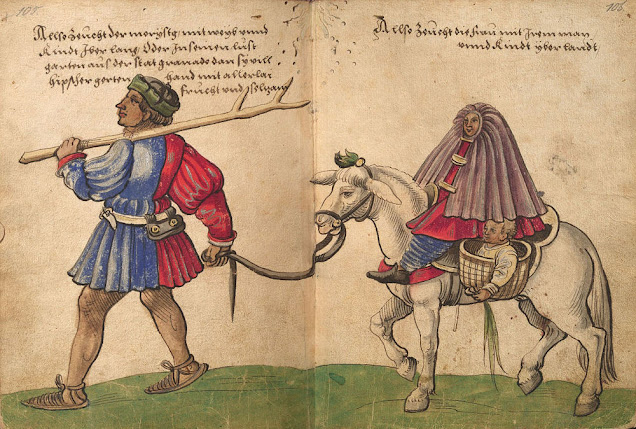 105
Allso Zeucht der morystg mit weyb vnnd
Kindt Jber lanc Oder Jn seinen lust
garten aus der stat granado dan sy vill
hipscher gerten hand mit allerlai
frucht vnd
106
Allso Zeucht die frau mit Jrem man
vnnd Kindt yber landt